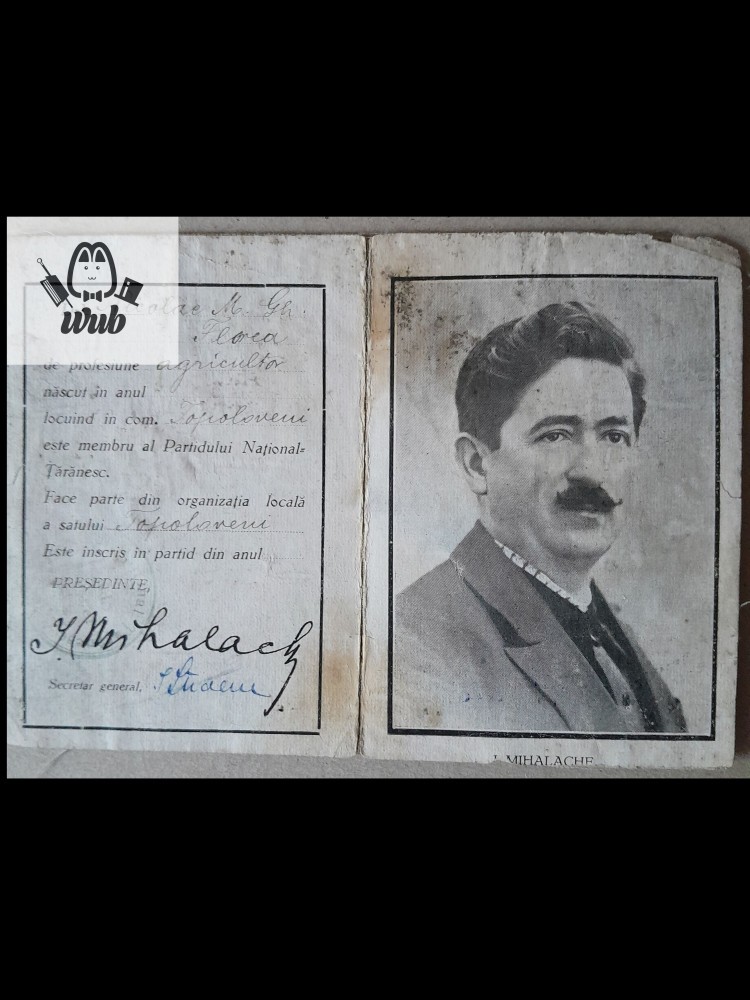 wub
M. Gh.
Florea
de profesiune agricultor
născut în anul
locuind în com. Topoloveni
este membru al Partidului Național-
Țărănesc.
Face parte din organizația locală
a satului Topoloveni
Este înscris în partid din anul
PREȘEDINTE,
I Mihalache
Secretar general,
I. MIHALACHE